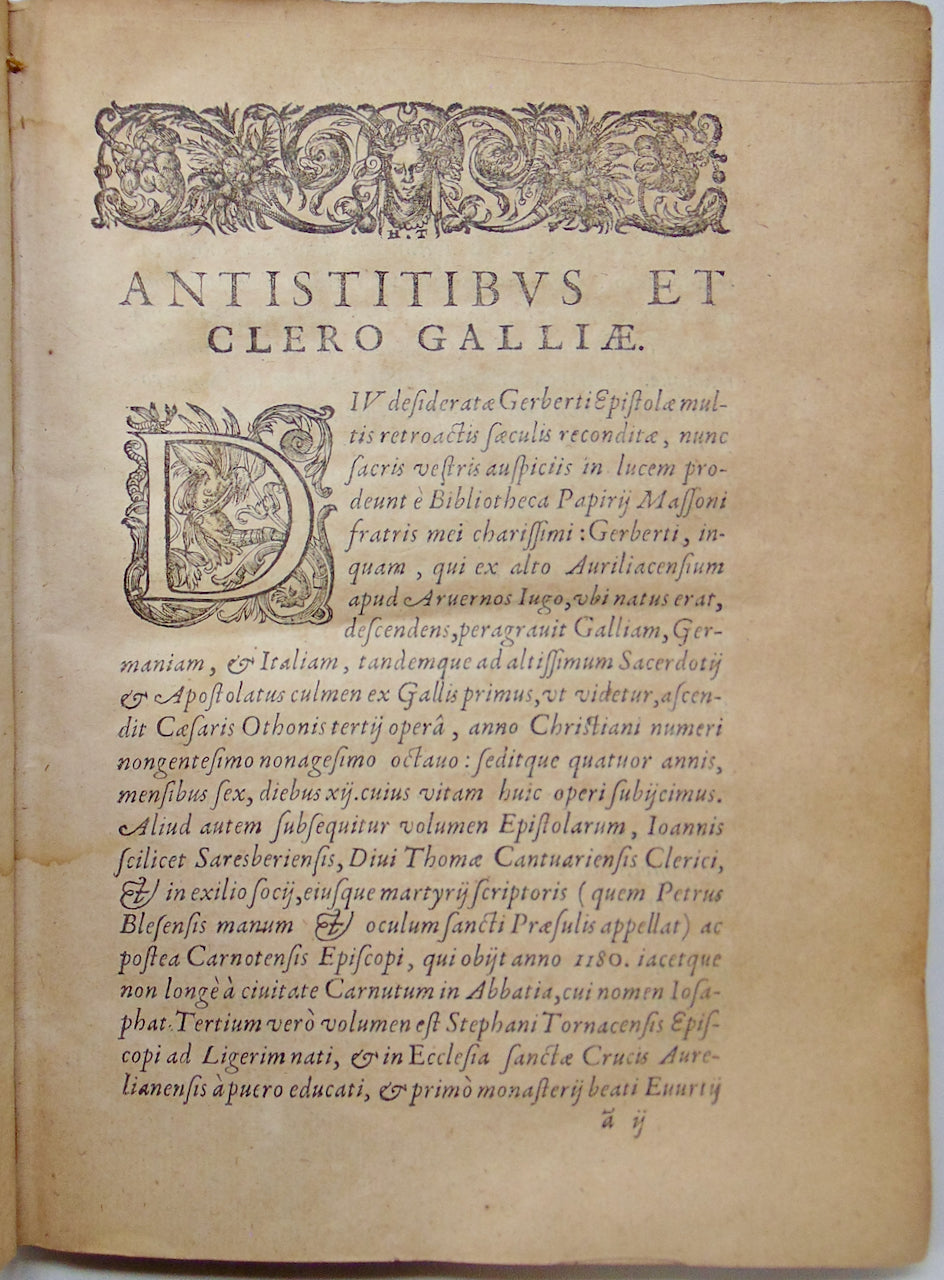 H. T
ANTISTITIBVS ET
CLERO GALLIÆ.
DIV deſideratæ Gerberti Epiſtolæ mul-
tis retroactis ſæculis reconditæ, nunc
ſacris veſtris auſpiciis in lucem pro-
deunt è Bibliotheca Papirij Maſſoni
fratris mei chariſſimi : Gerberti, in-
quam, qui ex alto Auriliacenſium
apud Aruernos Iugo, vbi natus erat,
deſcendens, peragrauit Galliam, Ger-
maniam, & Italiam, tandemque ad altiſſimum Sacerdotij
& Apoſtolatus culmen ex Gallis primus, vt videtur, aſcen-
dit Cæſaris Othonis tertij operâ, anno Chriſtiani numeri
nongenteſimo nonageſimo octauo : ſeditque quatuor annis,
menſibus ſex, diebus xij. cuius vitam huic operi ſubijcimus.
Aliud autem ſubſequitur volumen Epiſtolarum, Ioannis
ſcilicet Saresberienſis, Diui Thomæ Cantuarienſis Clerici,
& in exilio ſocij, eiuſque martyrij ſcriptoris ( quem Petrus
Bleſenſis manum & oculum ſancti Præſulis appellat) ac
poſtea Carnotenſis Epiſcopi, qui obijt anno 1180. iacetque
non longè à ciuitate Carnutum in Abbatia, cui nomen Ioſa-
phat. Tertium verò volumen eſt Stephani Tornacenſis Epiſ-
copi ad Ligerim nati, & in Eccleſia ſanctæ Crucis Aure-
lianenſis à puero educati, & primò monaſterij beati Euurtij
ã ij